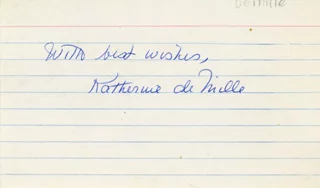 With best wishes,
Katherine de Mille